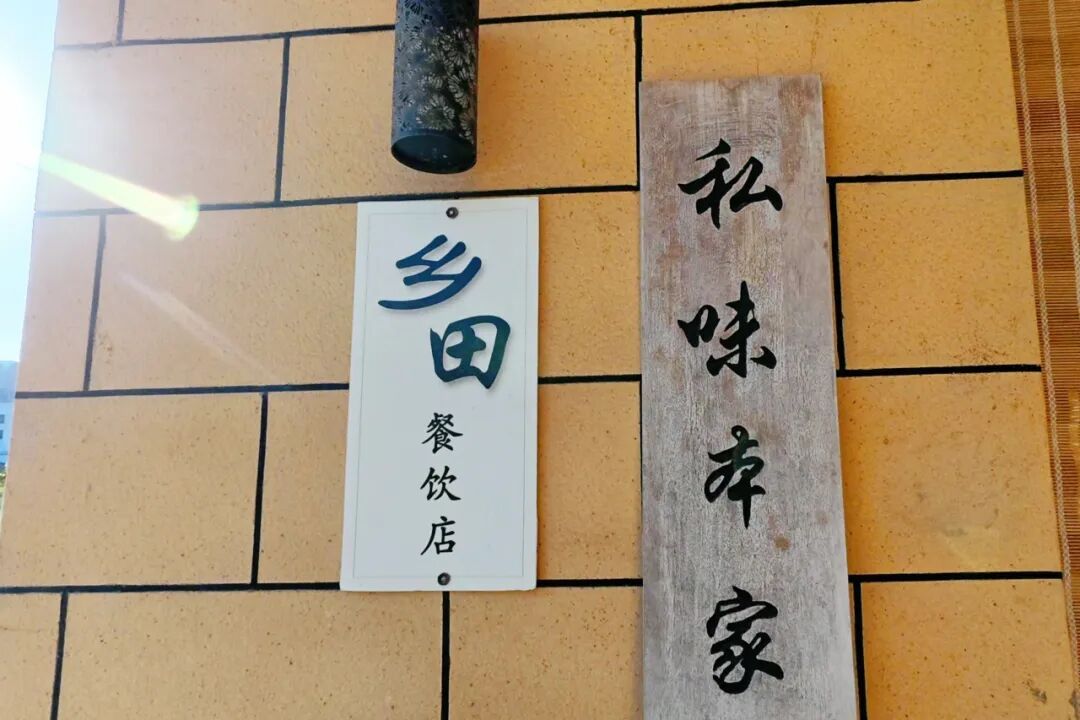 乡田
餐饮店
私味本家